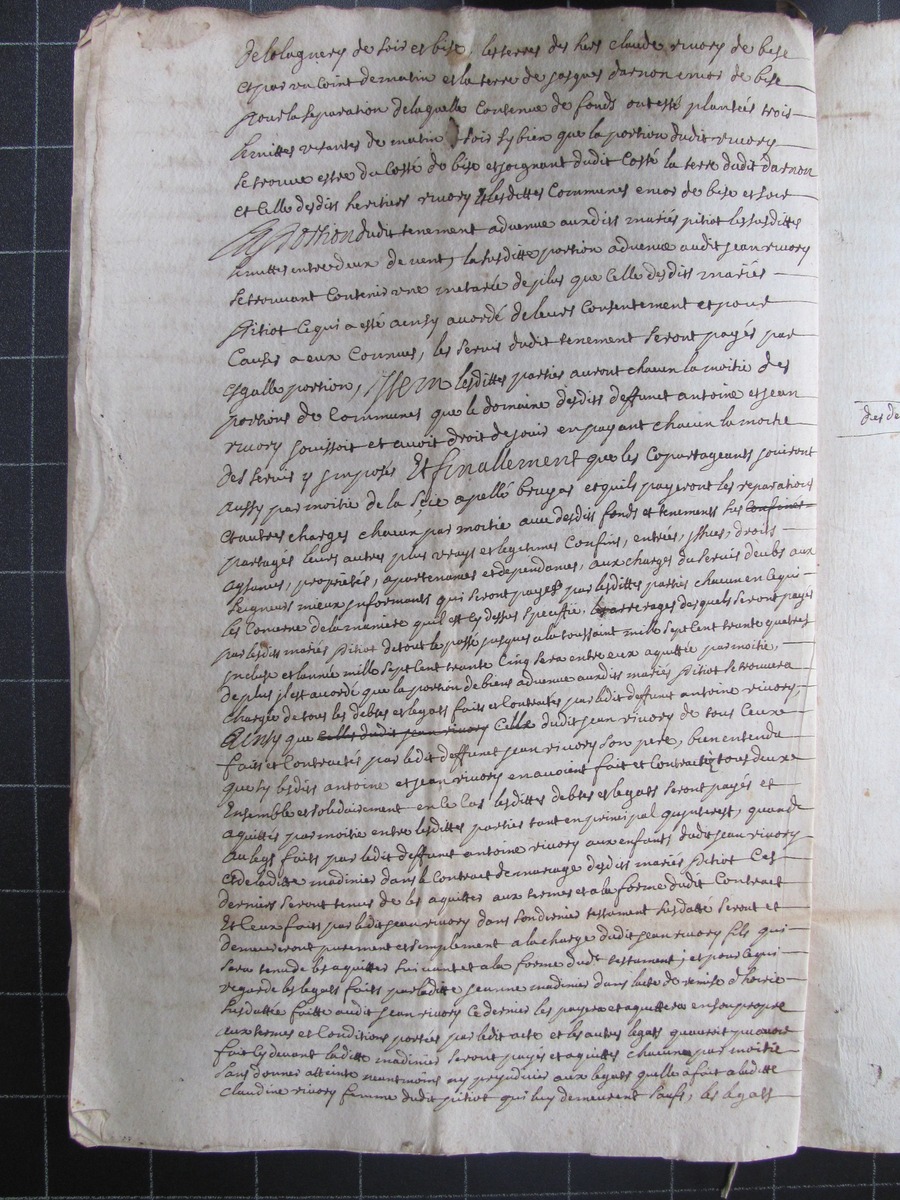 de soir et bise, les terres des hers claude rivory de bise
et par un coint de matin et la terre de jacques darnon encor de bise
pour la separation de laquelle contenue de fonds ont esté plantées trois
limittes visantes de matin soir sy bien que la portion dudit rivory
se trouve estre du costé de bise et joignant dudit costé la terre dudit darnon
et celle desdits heritiers rivory & lesdittes communes encor de bise et soir
La portion dudit tenement advenue auxdits mariés pitiot les susdittes
limittes entre deux de vent, la susditte portion advenue audit jean rivory
se trouvant contenir une metarée de plus que celle desdits mariés
pitiot ce qui a esté ainsy accordé de leurs consentement et pour
causes a eux connues, les servis dudit tenement seront payés par
esgalle portion, Ittem lesdittes parties auront chacun la moitié des
portions de communes que le domaine desdits deffunct antoine et jean
rivory jouissoit et avoit droit de jouir en payant chacun la moitié
des servis y imposés Et finallement que les copartageants jouiront
aussy par moitié de la scie apellé bruyas et quils payeront les reparations
et autres charges chacun par moitié avec desdits fonds et tenements sus confinés
partagés leurs autres plus vrays et legitimes confins, entrées, issues, droits
aysances, proprietés, apartenances et dependances, aux charges du servis deubs aux
seigneurs mieux informants qui seront payés par lesdittes parties chacun en ce qui
les concerne de la maniere quil est cy dessus specifié, les arrerages desquels seront payés
par lesdits mariés pitiot de tout le passé jusques a la toussaint mille sept cent trante quatre
incluse et lannée mille sept cent trante cinq sera entre eux aquittée par moitié,
De plus il est accordé que la portion de biens advenue auxdits mariés pitiot se trouvera
chargée de tous les debtes et legats faits et contractés par ledit deffunct antoine rivory,
Ainsy que celle dudit jean rivory celle dudit jean rivory de tous ceux
faits et contractés par ledit deffunct jean rivory son pere, bien entendu
que sy lesdits antoine et jean rivory en avoient fait et contracté tous deux
Ensemble et solidairement en ce cas lesdittes debtes et legats seront payés et
aquittés par moitié entre lesdittes parties tant en principal quinterest, quand
au legs faits par ledit deffunct antoine rivory aux enfants dudit jean rivory
et de laditte madinier dans le contract de mariage desdits mariés pitiot ces
derniers seront tenus de les aquitter aux termes et a la forme dudit contract
Et ceux faits par ledit jean rivory dans son dernier testament susdatté seront et
demeureront purement et simplement a la charge dudit jean rivory fils qui
sera tenu de les aquitter suivant et a la forme dudit testament; et pour ce qui
regarde les legats faits par laditte jeanne madinier dans lacte de remise d'hoirie
susdattée faitte audit jean rivory ce dernier les payera et aquittera en son propre
aux termes et conditions portées par ledit acte et les autres legats quauroit pu avoir
fait cy devant laditte madinier seront payés et aquittés chacun par moitié
sans donner atteinte neantmoins ny prejudicier aux legats quelle a fait a laditte
claudine rivory femme dudit pitiot qui luy demeurent saufs, les legats